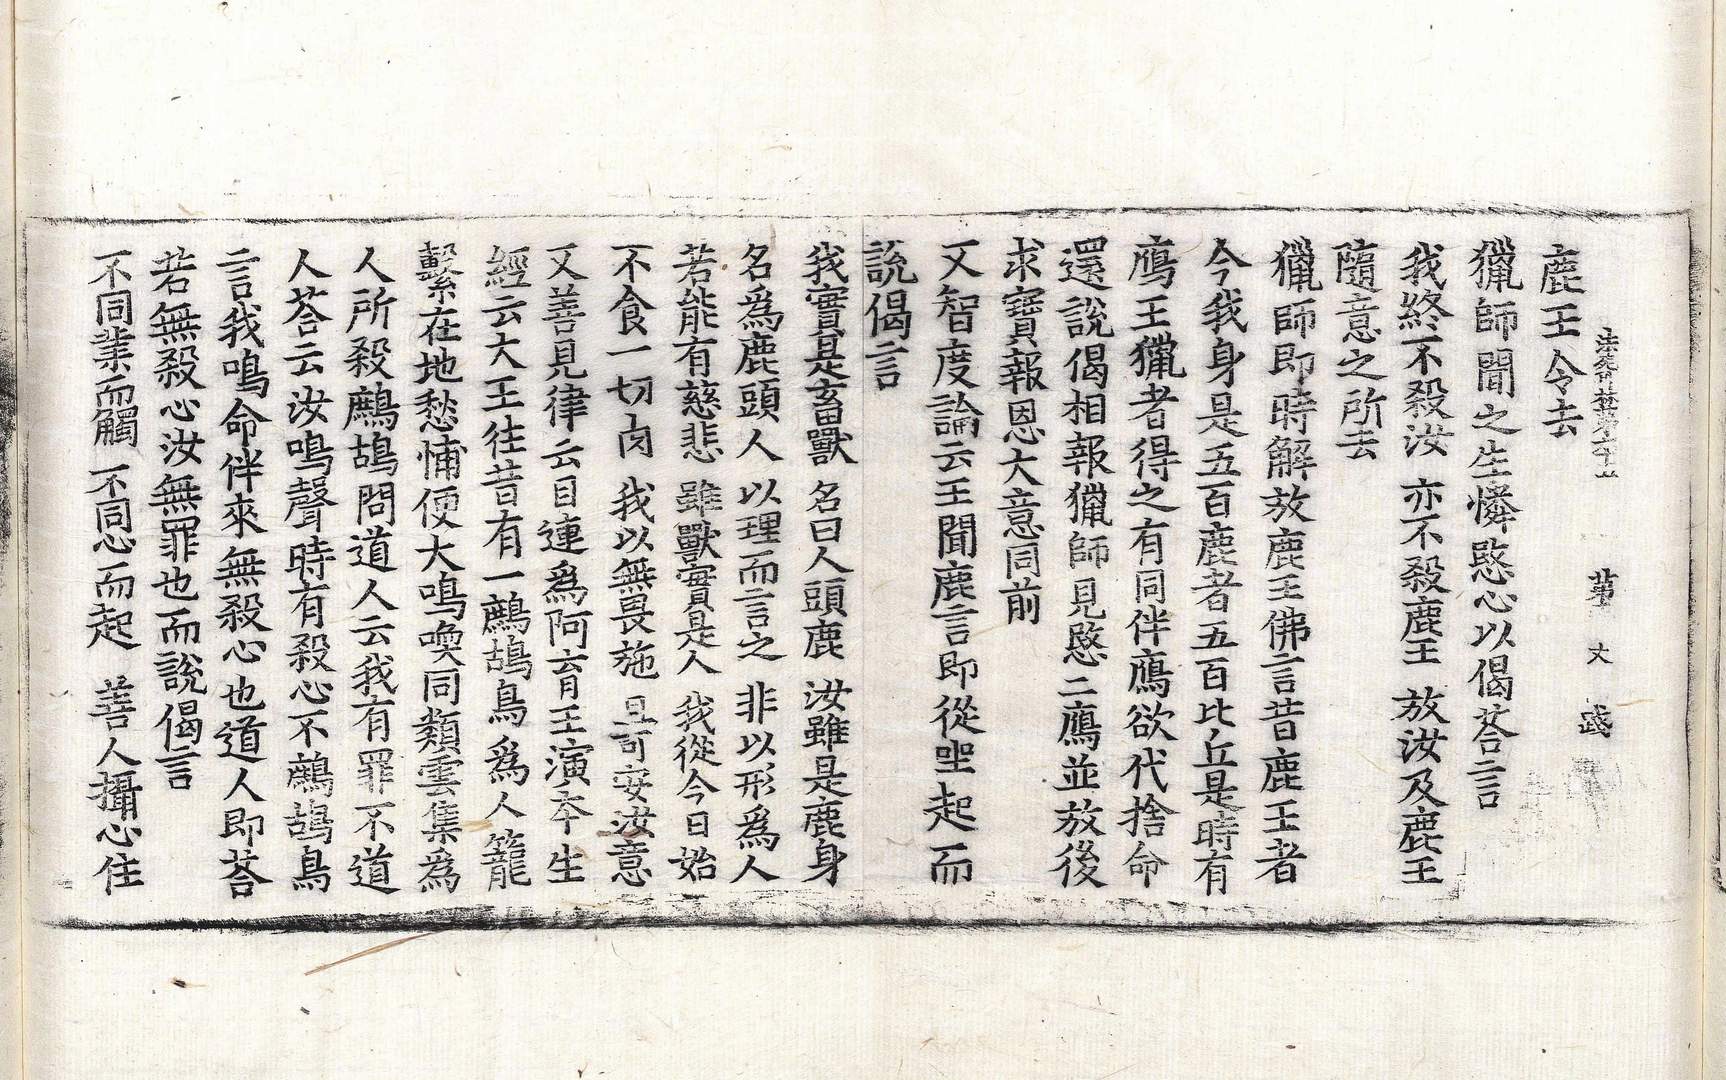 法苑珠林第六十五 第 丈 盛
鹿王令去
獵師聞之生憐愍心以偈荅言
我終不殺汝 亦不殺鹿王 放汝及鹿王
隨意之所去
獵師即時解放鹿王佛言昔鹿王者
今我身是五百鹿者五百比丘是時有
鴈王獵者得之有同伴鴈欲代捨命
還說偈相報獵師見愍二鴈並放後
求寶報恩大意同前
又智度論云王聞鹿言即從坐起而
說偈言
我實是畜獸 名曰人頭鹿 汝雖是鹿身
名爲鹿頭人 以理而言之 非以形爲人
若能有慈悲 雖獸實是人 我從今日始
不食一切肉 我以無畏施 且可安汝意
又善見律云目連爲阿育王演本生
經云大王往昔有一鷓鴣鳥爲人籠
繫在地愁怖便大鳴喚同類雲集爲
人所殺鷓鴣問道人云我有罪不道
人荅云汝鳴聲時有殺心不鷓鴣鳥
言我鳴命伴來無殺心也道人即荅
若無殺心汝無罪也而說偈言
不同業而觸 不同心而起 善人攝心住